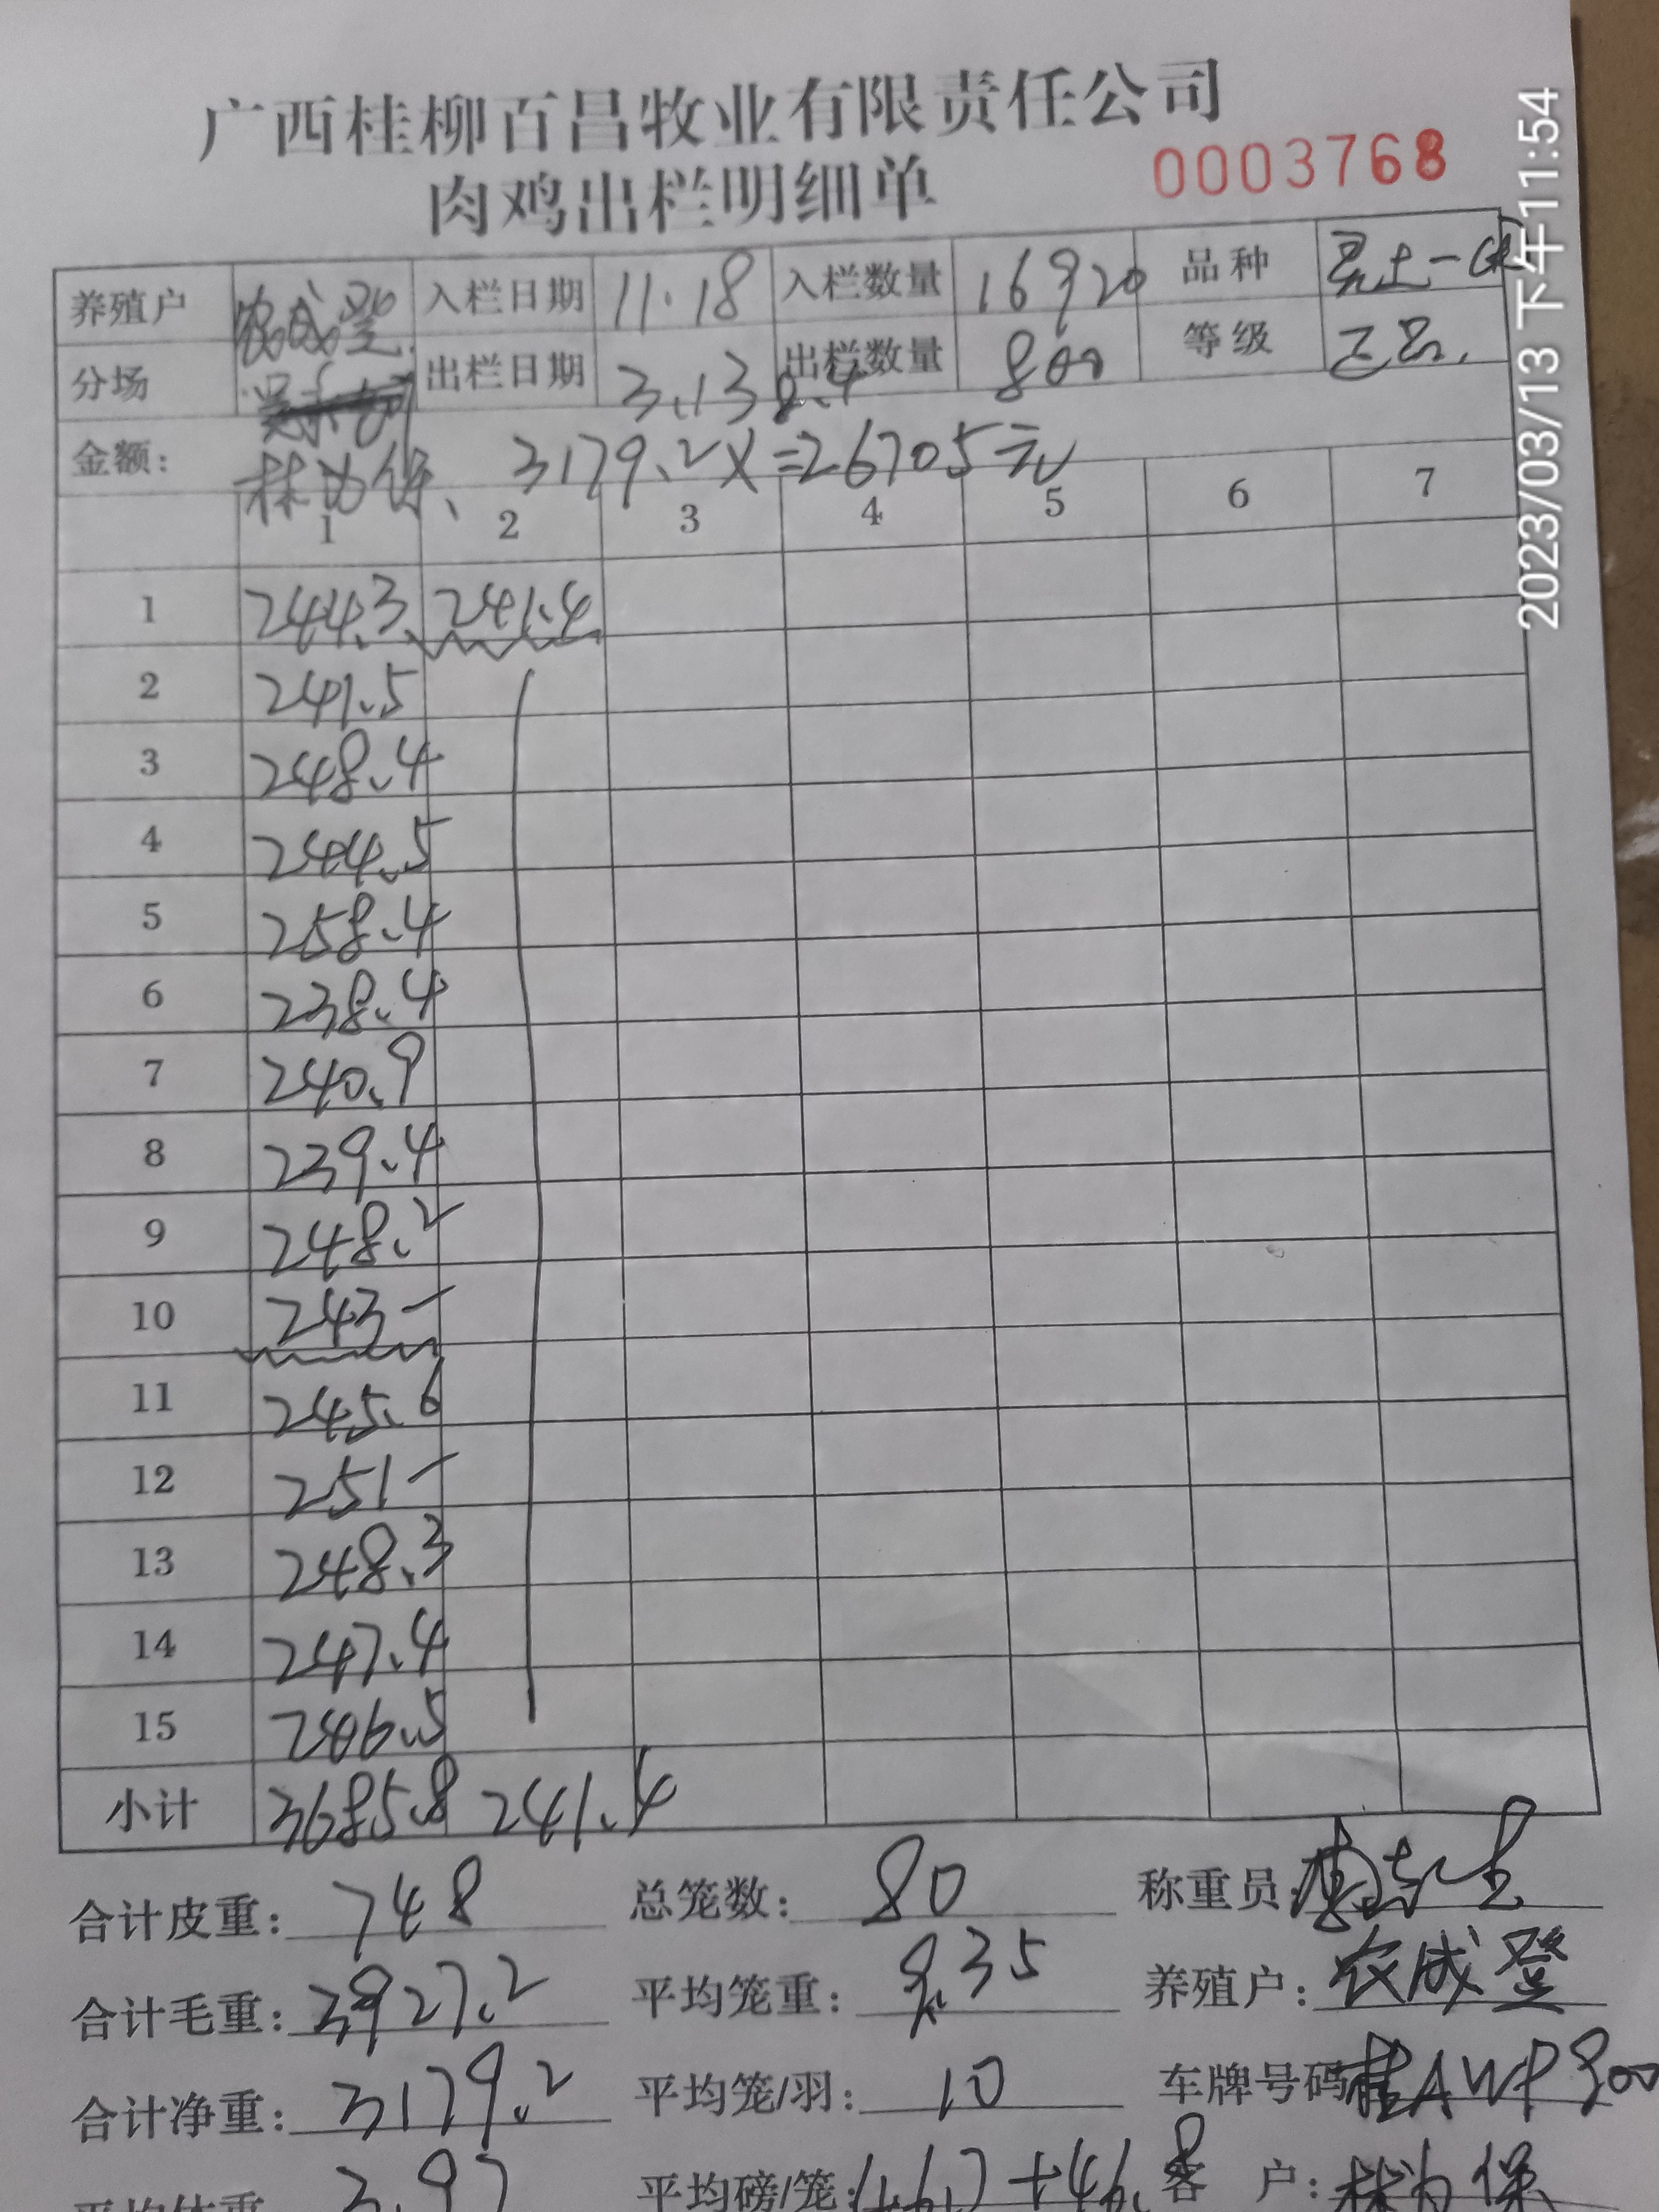 广西桂柳百昌牧业有限责任公司
肉鸡出栏明细单 0003768
养殖户 农成登 入栏日期 11.18 入栏数量 16920 品种 土一
分场 出栏日期 3.13 出栏数量 800 等级 正品.
8.4
金额: 林为保、 3179.2X=26705元
1 2 3 4 5 6 7
1 244.3 241.4
2 241.5
3 248.4
4 244.5
5 258.4
6 238.4
7 240.9
8 239.4
9 248.2
10 243-
11 245.6
12 251-
13 248.3
14 247.4
15 246.5
小计 3685.8 241.4
合计皮重: 748 总笼数: 80 称重员:
合计毛重: 3927.2 平均笼重: 9.35 养殖户: 农成登
合计净重: 3179.2 平均笼/羽: 10 车牌号码 桂AWP900
平均体重 3.97 平均磅/笼: 客户: 林为保
2023/03/13 下午11:54